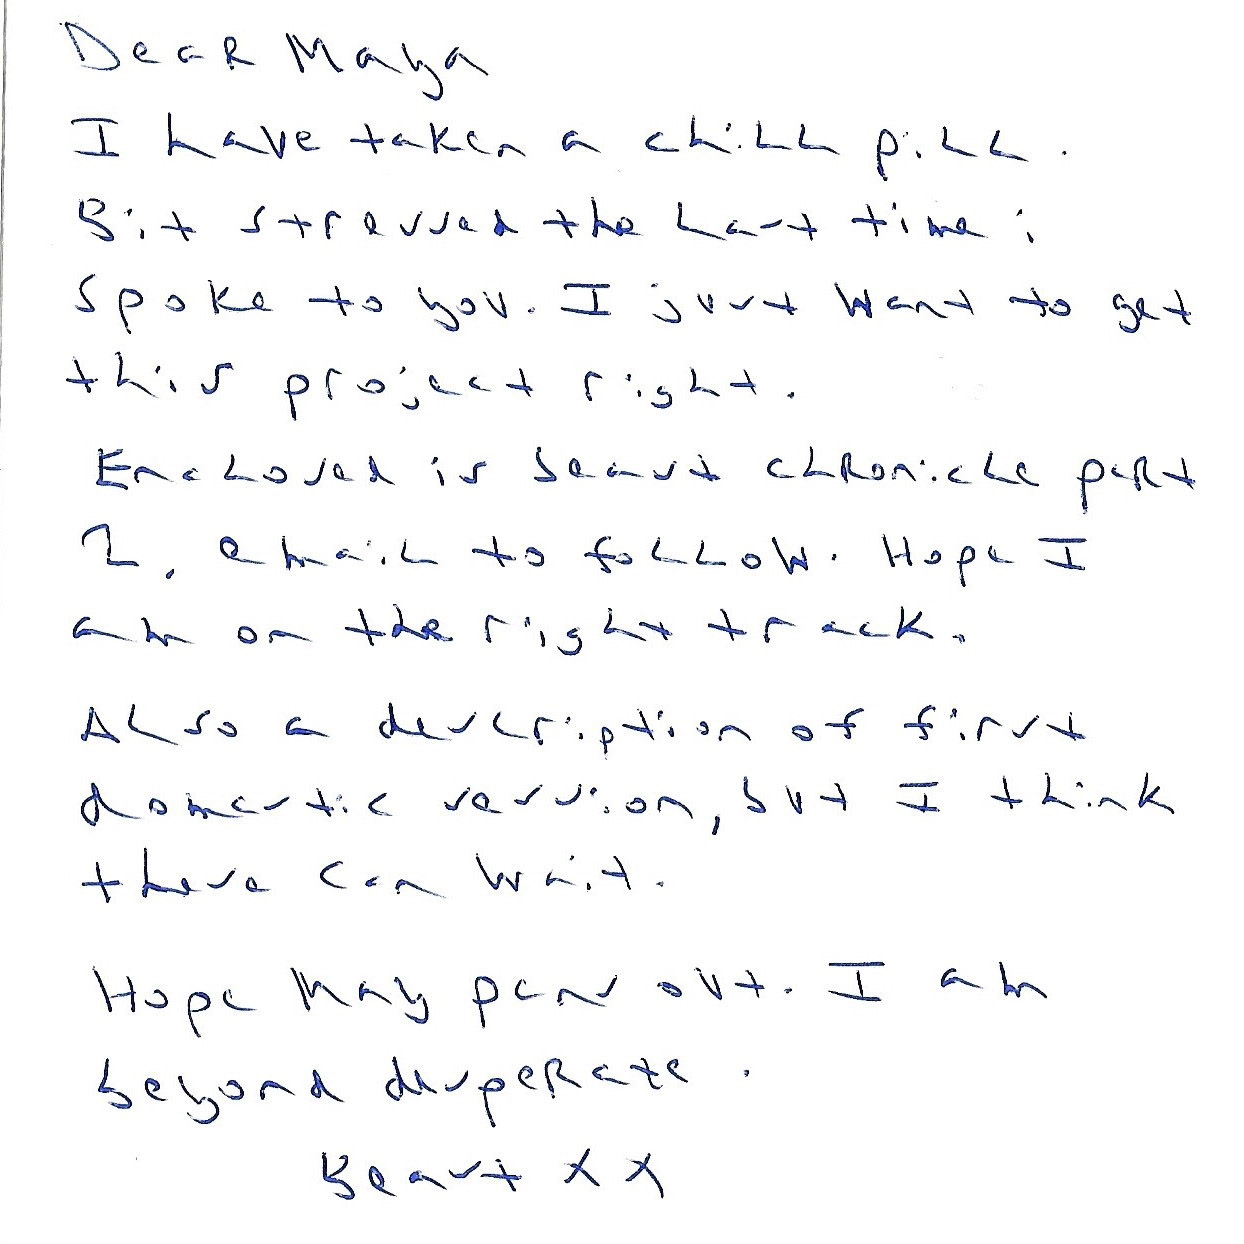 Dear Maya
I have taken a chill pill.
Bit stressed the last time i
spoke to you. I just want to get
this project right.
Enclosed is beast chronicle part
2, email to follow. Hope I
am on the right track.
Also a description of first
domestic version, but I think
these can wait.
Hope May pans out. I am
beyond desperate.
Beast x x